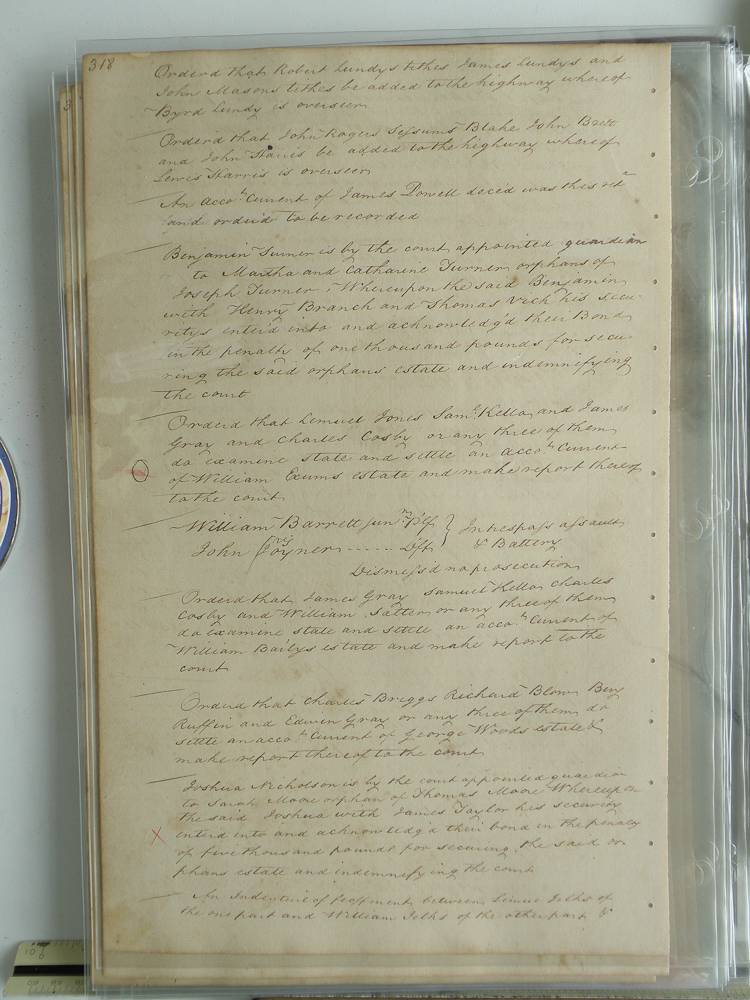 318
Orderd that Robert Lundys tithes James Lundys and
John Masons tithes be added to the highway whereof
Byrd Lundy is overseer
Orderd that John Rogers Sessums Blake John Brett
and John Harris be added to the highway whereof
Lewis Harris is overseer
An acco.t Current of James Powell dece'd was this ret.d
and orderd to be recorded
Benjamin Turner is by the court appointed guardian
to Martha and Catharine Turner orphans of
Joseph Turner Whereupon the said Benjamin
with Henry Branch and Thomas Vick his secu-
ritys enterd into and acknowledg'd their Bond
in the penalty of one thousand pounds for secu-
ring the said orphans estate and indemnifying
the court
Orderd that Lemuel Jones Sam.l Kello and James
Gray and Charles Cosby or any three of them
do examine state and settle an acco.t Current
of William Exums estate and make report thereof
to the court
William Barrett jun.r Plf } In trespass assault
John Joyner ...... Dft & Battery
Dismess'd no prosecution
Orderd that James Gray Samuel Kello Charles
Cosby and William Salter or any three of them
do examine state and settle an acco.t Current of
William Bailys estate and make report to the
court
Orderd that Charles Briggs Richard Blow Ben
Ruffin and Edwin Gray or any three of them do
settle an acco.t Current of George Woods estate &
make report thereof to the court
Joshua Nicholson is by the court appointed guardian
to Sarah Moore orphan of Thomas Moore Whereupon
the said Joshua with James Taylor his security
enterd into and acknowledg'd their bond in the penalty
of five thousand pounds for securing the said or
phans estate and indemnifying the court
An Indenture of feoffment between Lemuel Jelks of
the one part and William Jelks of the other part &